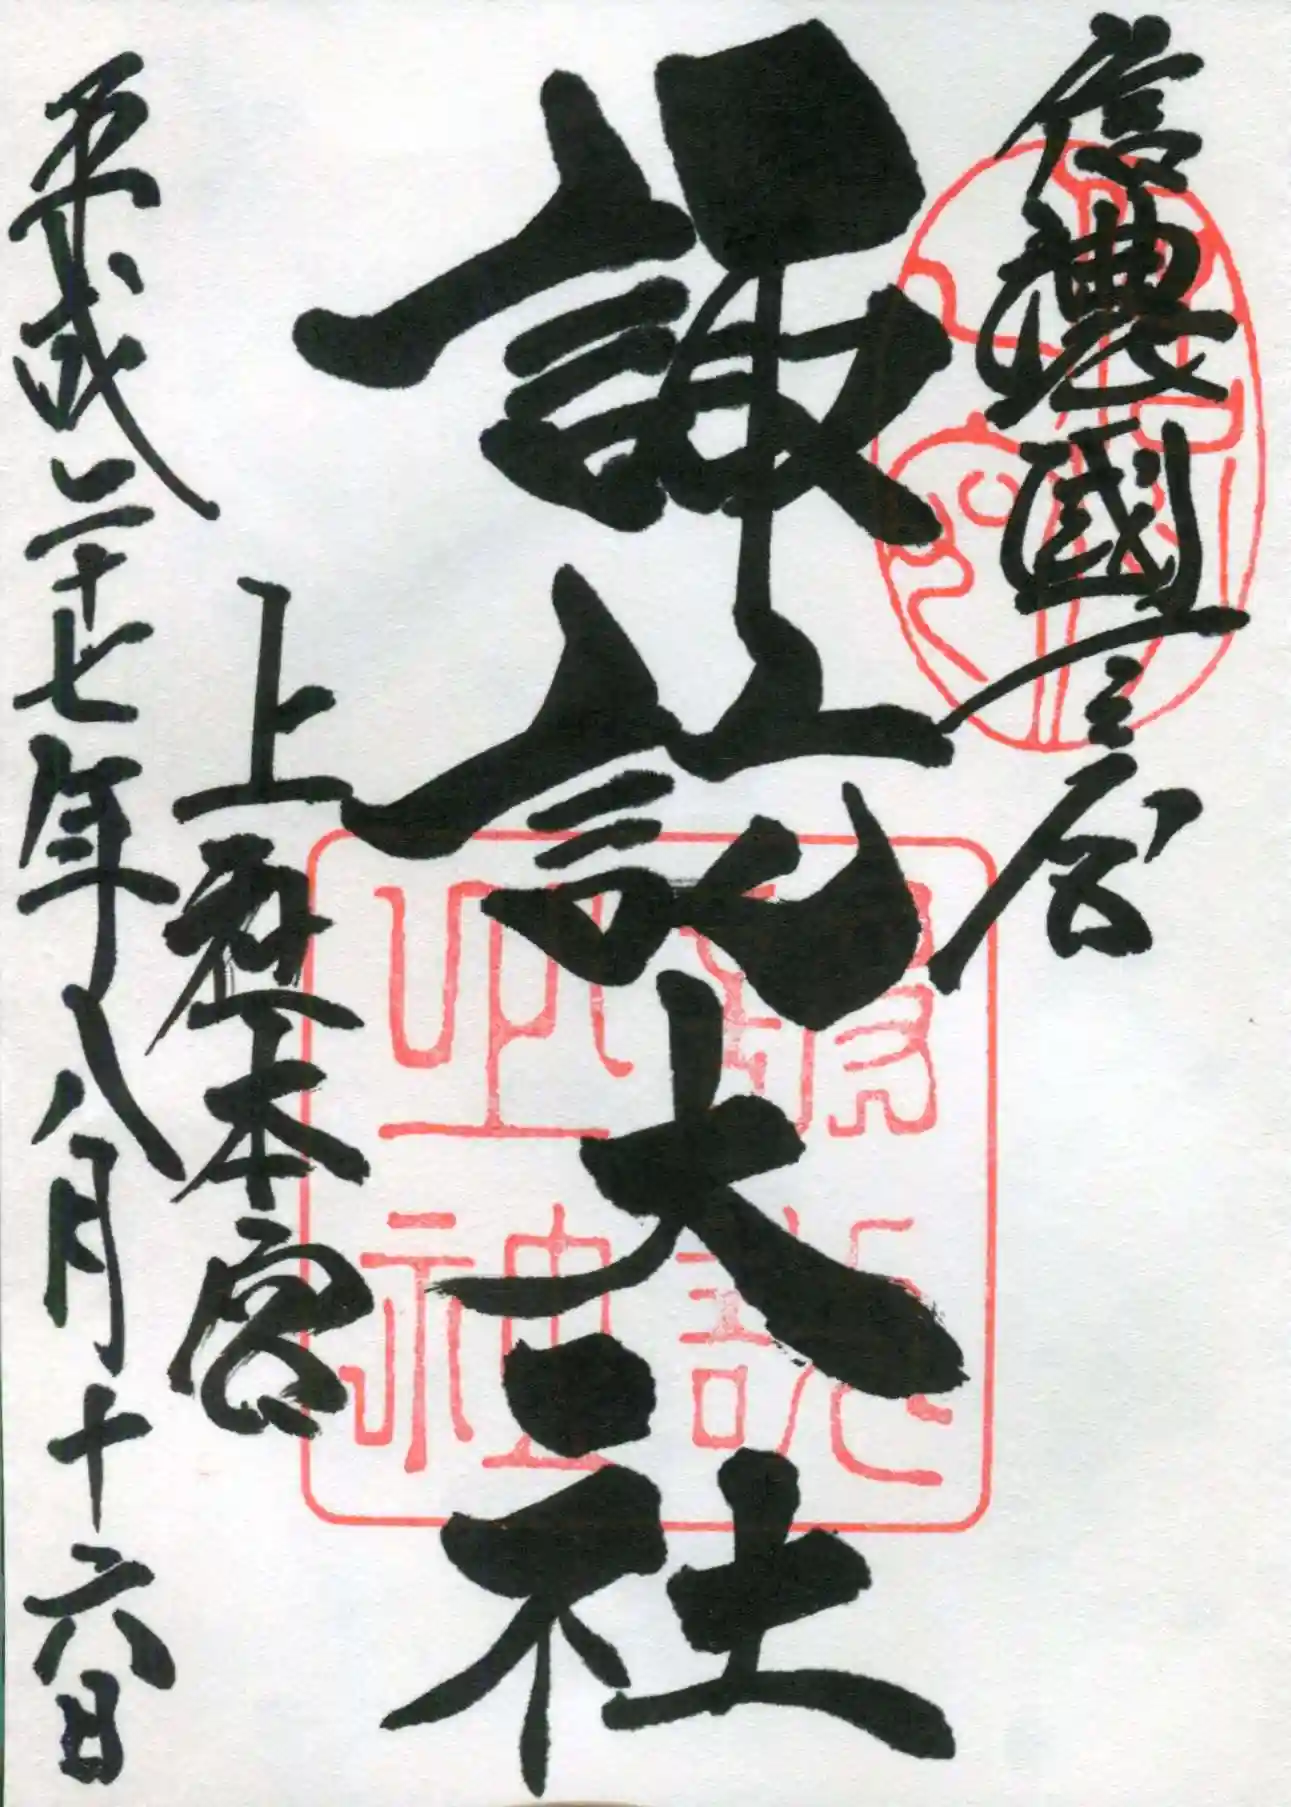 信濃國一之宮
諏訪大社
上社本宮
平成二十七年八月十六日